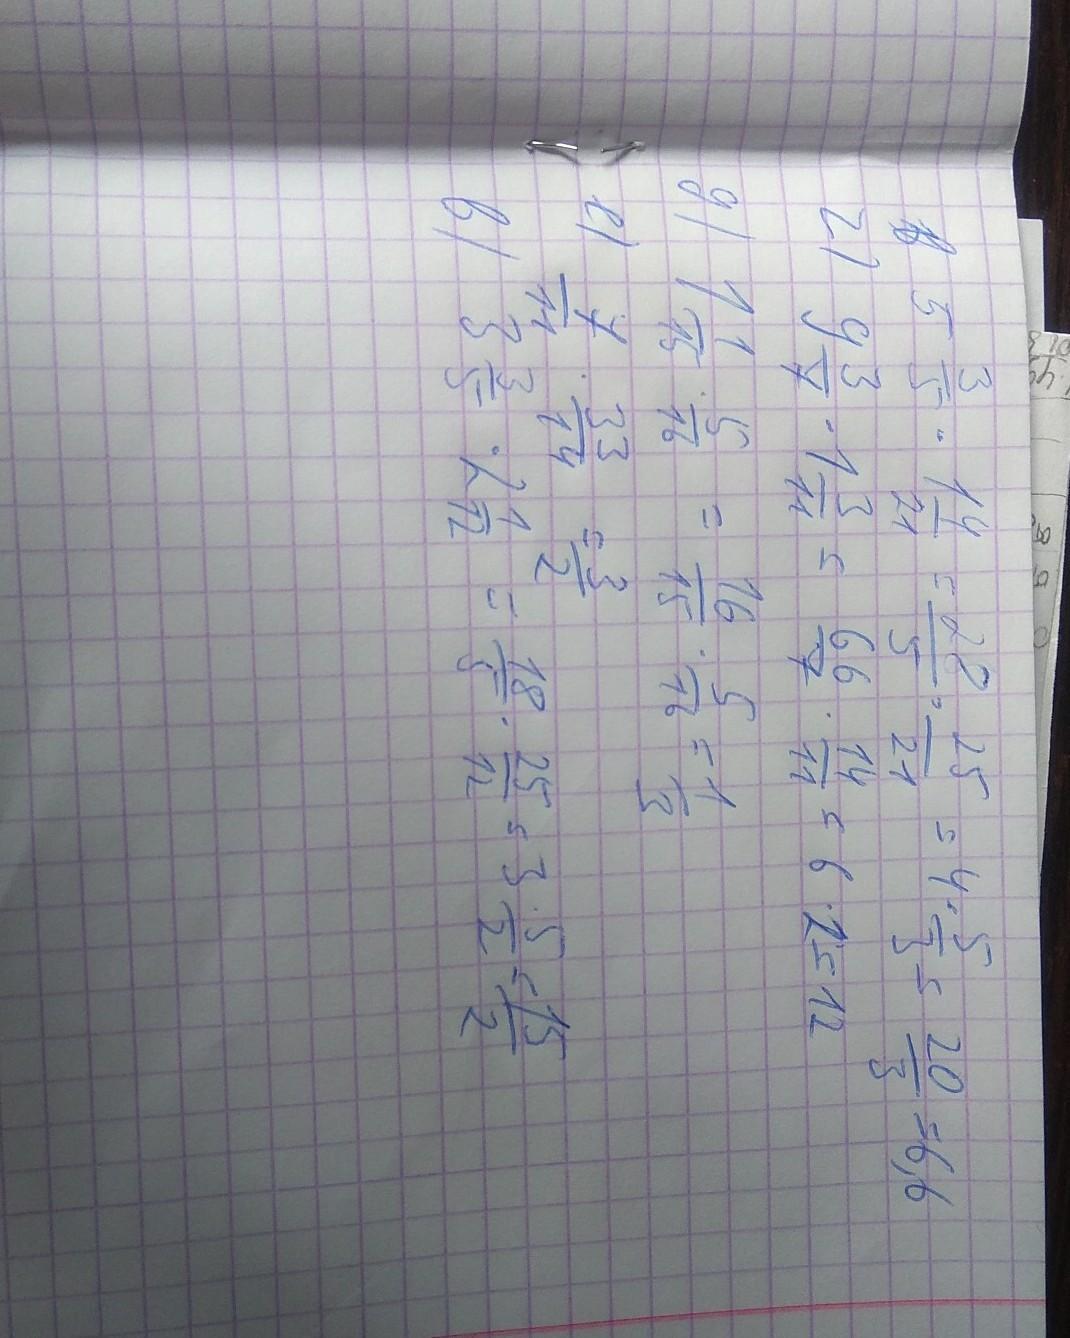 5 3/5 · 14/21 = 28/5 · 25/21 = 4 · 5/3 = 20/3 = 6,6
г) 9 3/7 · 1 3/11 = 66/7 · 14/11 = 6 · 2 = 12
д) 1 1/15 · 5/16 = 16/15 · 5/16 = 1/3
е) 7/11 · 33/14 = 3/2
в) 3 3/5 · 2 1/12 = 18/5 · 25/12 = 3 · 5/2 = 15/2